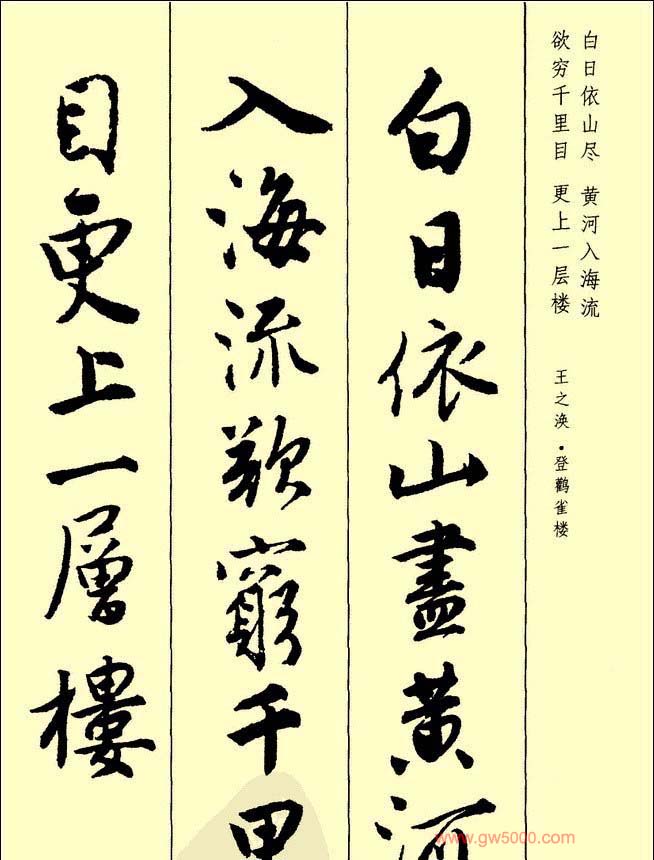 白日依山尽 黄河入海流
欲穷千里目 更上一层楼
王之涣·登鹳雀楼
白日依山盡黃河
入海流欲窮千里
目更上一層樓
www.gw5000.com